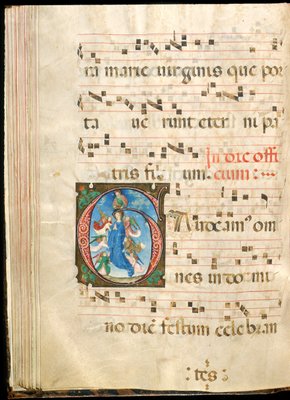 ra marie uirginis que por
ta ue runt eter ni pa
In die offi
tris fi li um: cium:
GAudeam⁹ om
nes in do mi
no diē festum celebran
: tes :